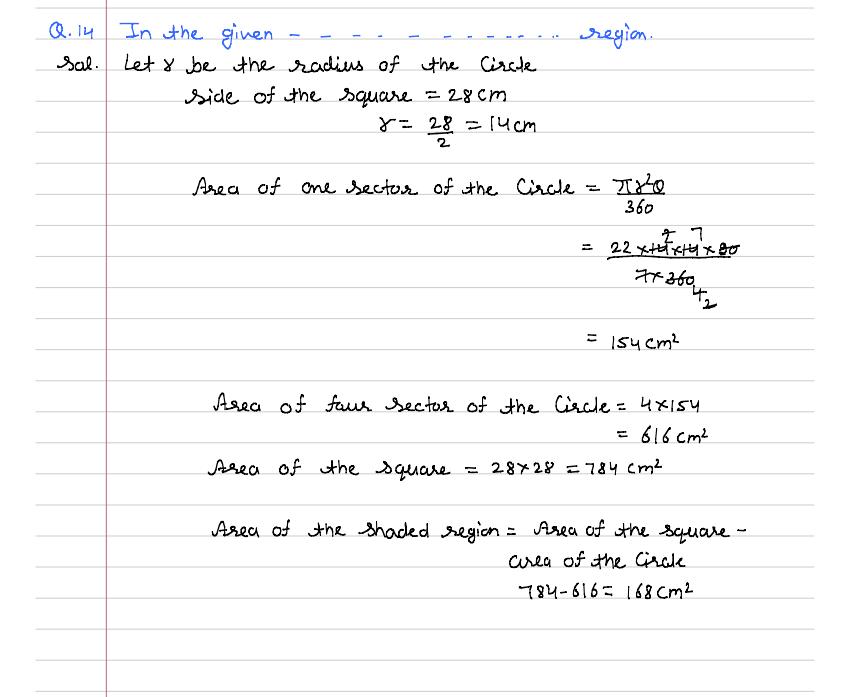 Q.14 In the given - - - - - - - - - - - - .. region.
Sol. Let r be the radius of the Circle
side of the square = 28cm
r = 28/2 = 14cm
Area of one sector of the Circle = πr²θ/360
= 22 × 14 × 14 × 90 / 7 × 360
2 7
4
2
= 154 cm²
Area of four sector of the Circle = 4×154
= 616 cm²
Area of the square = 28×28 = 784 cm²
Area of the shaded region = Area of the square -
area of the Circle
784-616 = 168 cm²